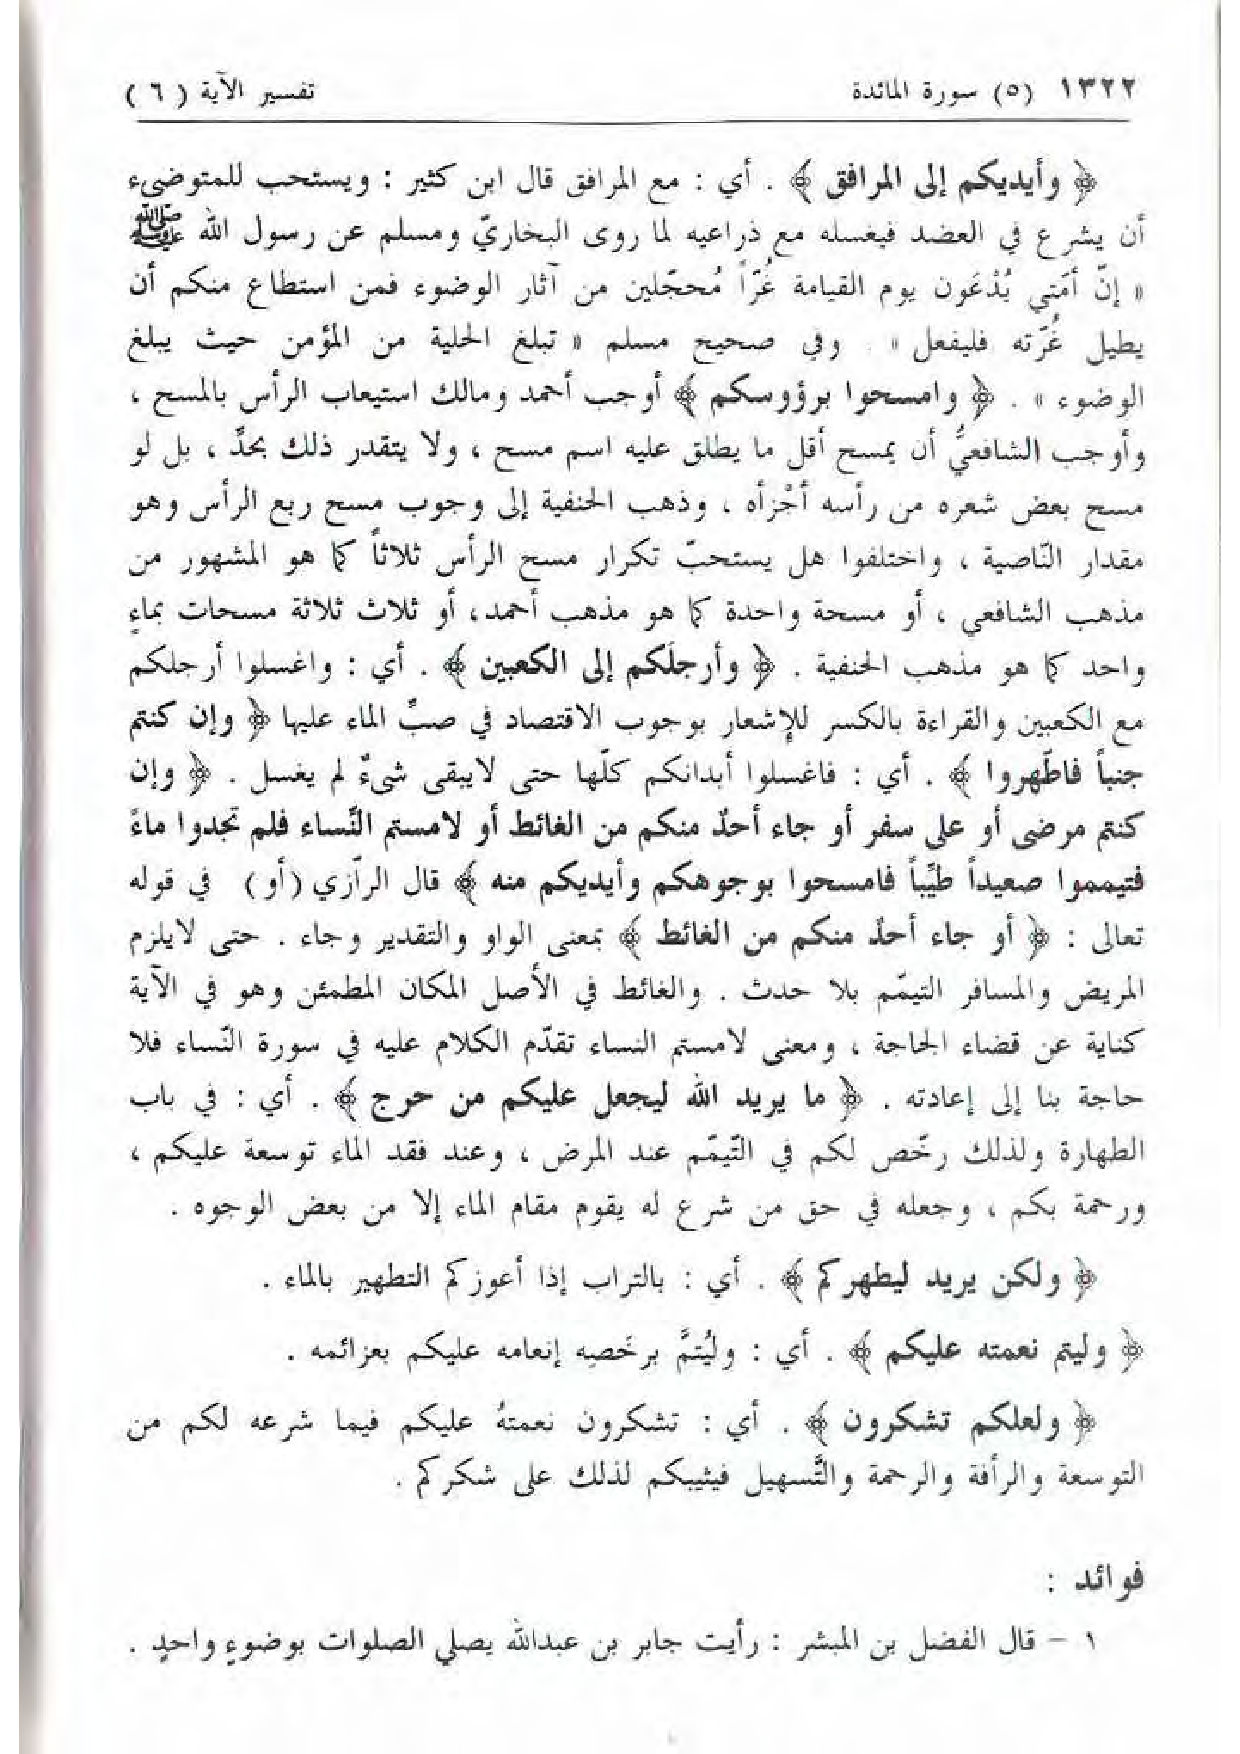 ١٣٢٢ (٥) سورة المائدة تفسير الآية ( ٦ )
﴿ وأيديكم إلى المرافق ﴾ . أي : مع المرافق قال ابن كثير : ويستحب للمتوضىء
أن يشرع في العضد فيغسله مع ذراعيه لما روى البخاريّ ومسلم عن رسول الله ﷺ
« إنّ أمّتي يُدْعَون يوم القيامة غُرّاً مُحجّلين من آثار الوضوء فمن استطاع منكم أن
يطيل غُرّته فليفعل » . وفي صحيح مسلم « تبلغ الحلية من المؤمن حيث يبلغ
الوضوء » . ﴿ وامسحوا برؤوسكم ﴾ أوجب أحمد ومالك استيعاب الرأس بالمسح ،
وأوجب الشافعيُّ أن يمسح أقل ما يطلق عليه اسم مسح ، ولا يتقدر ذلك بحدٍّ ، بل لو
مسح بعض شعره من رأسه أجْزأه ، وذهب الحنفية إلى وجوب مسح ربع الرأس وهو
مقدار النّاصية ، واختلفوا هل يستحبّ تكرار مسح الرأس ثلاثاً كما هو المشهور من
مذهب الشافعي ، أو مسحة واحدة كما هو مذهب أحمد، أو ثلاث ثلاثة مسحات بماءٍ
واحد كما هو مذهب الحنفية . ﴿ وأرجلَكم إلى الكعبين ﴾ . أي : واغسلوا أرجلكم
مع الكعبين والقراءة بالكسر للإشعار بوجوب الاقتصاد في صبِّ الماء عليها ﴿ وإن كنتم
جنباً فاطّهروا ﴾ . أي : فاغسلوا أبدانكم كلّها حتى لايبقى شىءٌ لم يغسل . ﴿ وإن
كنتم مرضى أو على سفر أو جاء أحدٌ منكم من الغائط أو لامستم النّساء فلم تجدوا ماءً
فتيمموا صعيداً طيِّباً فامسحوا بوجوهكم وأيديكم منه ﴾ قال الرّازي (أو) في قوله
تعالى : ﴿ أو جاء أحدٌ منكم من الغائط ﴾ بمعنى الواو والتقدير وجاء . حتى لايلزم
المريض والمسافر التيمّم بلا حدث . والغائط في الأصل المكان المطمئن وهو في الآية
كناية عن قضاء الحاجة ، ومعنى لامستم النساء تقدّم الكلام عليه في سورة النّساء فلا
حاجة بنا إلى إعادته . ﴿ ما يريد الله ليجعل عليكم من حرج ﴾ . أي : في باب
الطهارة ولذلك رخّص لكم في التّيمّم عند المرض ، وعند فقد الماء توسعة عليكم ،
ورحمة بكم ، وجعله في حق من شرع له يقوم مقام الماء إلا من بعض الوجوه .
﴿ ولكن يريد ليطهركم ﴾ . أي : بالتراب إذا أعوزكم التطهير بالماء .
﴿ وليتم نعمته عليكم ﴾ . أي : وليُتمَّ برخَصِه إنعامه عليكم بعزائمه .
﴿ ولعلكم تشكرون ﴾ . أي : تشكرون نعمتهُ عليكم فيما شرعه لكم من
التوسعة والرأفة والرحمة والتَّسهيل فيثيبكم لذلك على شكركم .
فوائد :
١ – قال الفضل بن المبشر : رأيت جابر بن عبدالله يصلي الصلوات بوضوءٍ واحدٍ .